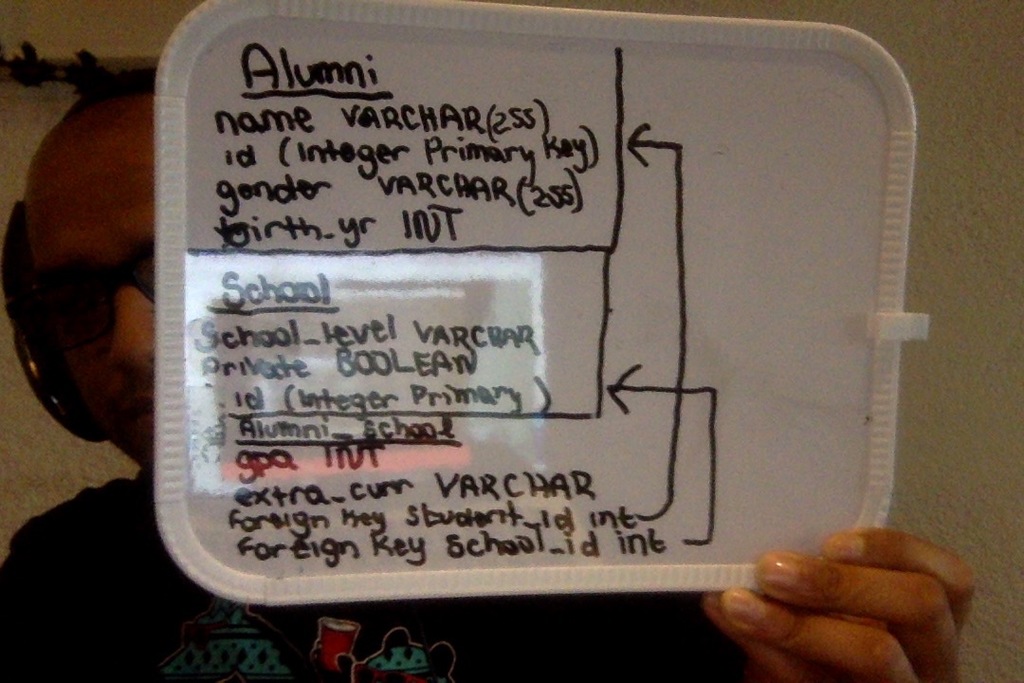 Alumni
name VARCHAR(255)
id (Integer Primary Key)
gender VARCHAR(255)
birth_yr INT
School
School_level VARCHAR
Private BOOLEAN
id (Integer Primary )
Alumni_school
gpa INT
extra_curr VARCHAR
Foreign Key Student_id int
Foreign Key School_id int